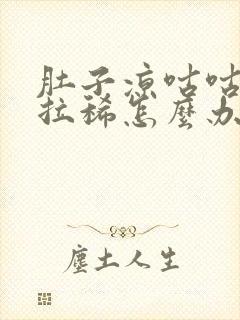 肚子凉咕咕
拉稀怎麽办
塵土人生